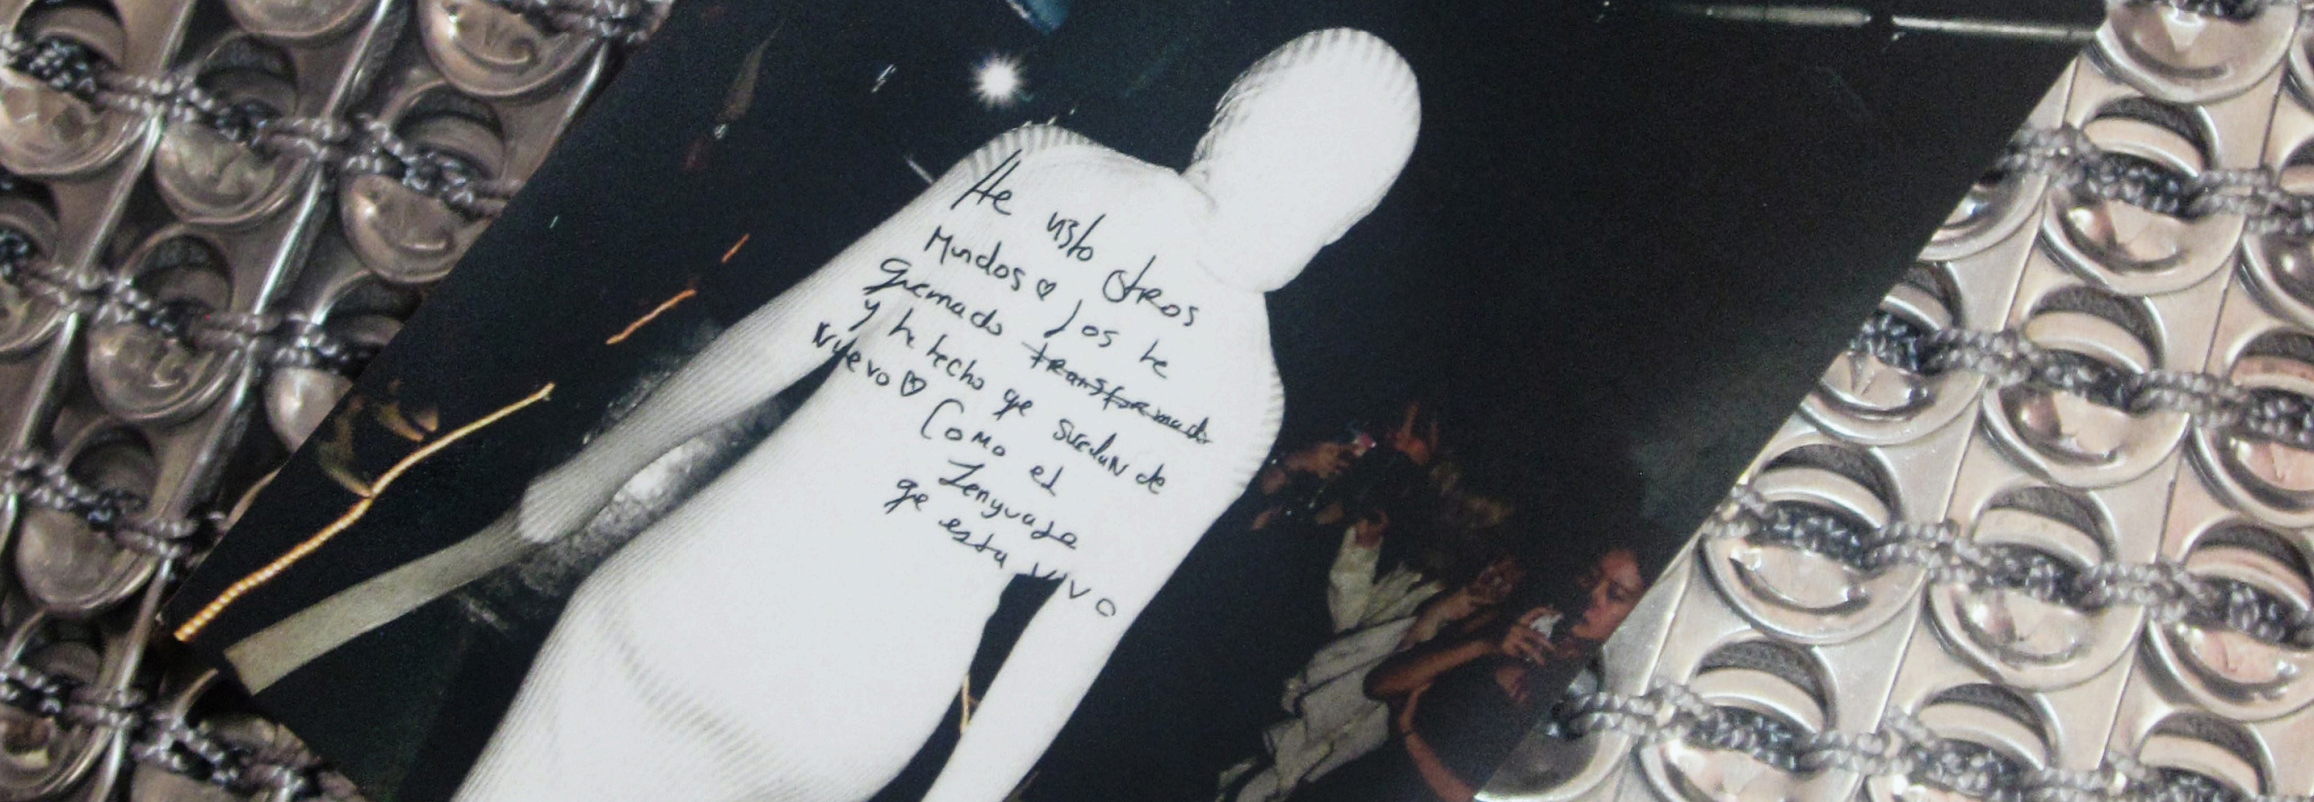 He visto otros
Mundos ♡ los he
qemado transformado
y he hecho qe sucedan de
Nuevo ♡ Como el
Lenguaje
qe esta vivo